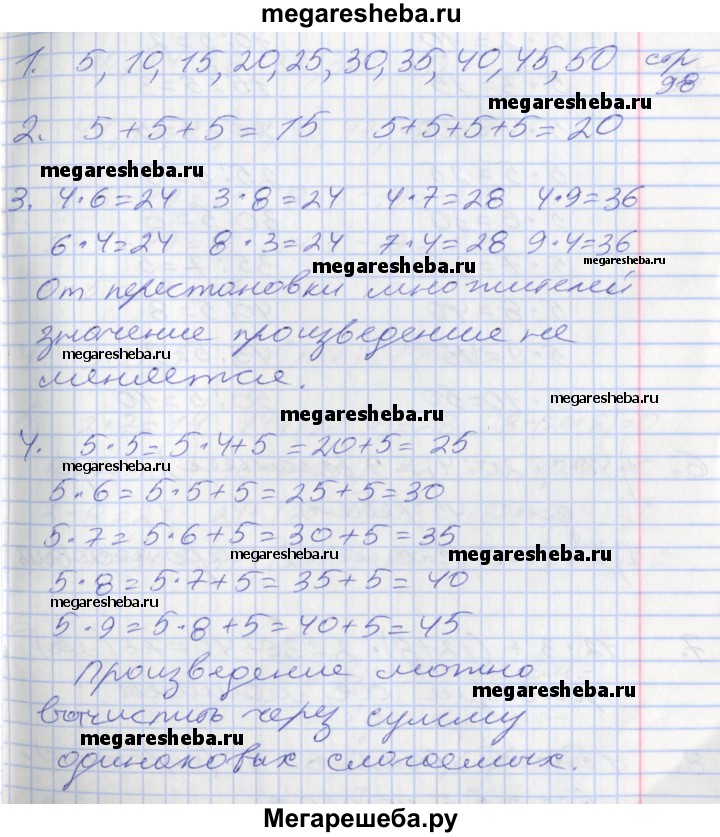 megaresheba.ru
1. 5, 10, 15, 20, 25, 30, 35, 40, 45, 50 стр
98
megaresheba.ru
2. 5+5+5=15 5+5+5+5=20
megaresheba.ru
3. 4·6=24 3·8=24 4·7=28 4·9=36
6·4=24 8·3=24 7·4=28 9·4=36
megaresheba.ru megaresheba.ru
От перестановки множителей
значение произведение не
megaresheba.ru
меняется.
megaresheba.ru
4. 5·5=5·4+5=20+5=25
megaresheba.ru
5·6=5·5+5=25+5=30
5·7=5·6+5=30+5=35
megaresheba.ru megaresheba.ru
5·8=5·7+5=35+5=40
megaresheba.ru
5·9=5·8+5=40+5=45
Произведение можно
megaresheba.ru
вычислить через сумму
megaresheba.ru
одинаковых слагаемых.
Мегарешеба.ру